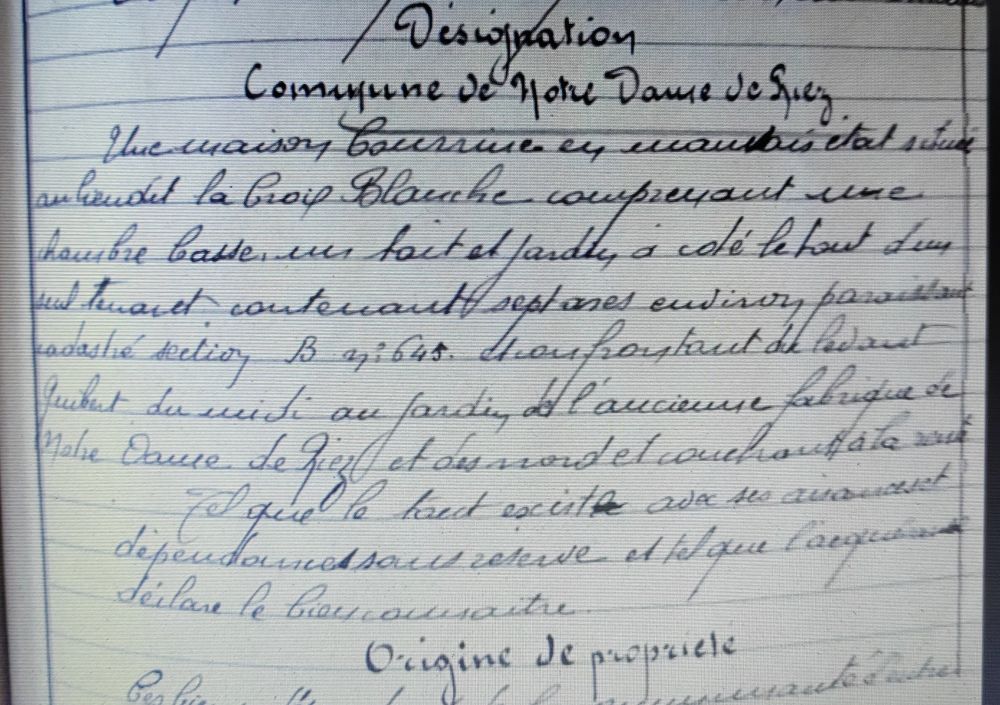 Désignation
Commune de Notre Dame de Riez
Une maison bourrine en mauvais état située
au lieudit la Croix Blanche comprenant une
chambre basse, un toit et jardin à côté le tout d'un
seul tenant contenant sept ares environ paraissant
cadastré section B n: 645. et confrontant du levant
du midi au jardin de l'ancienne fabrique de
Notre Dame de Riez et des nord et couchant à la route
Tel que le tout existe avec ses aisances et
dépendances sans réserve et tel que l'acquéreur
déclare le bien connaitre.
Origine de propriété
communauté